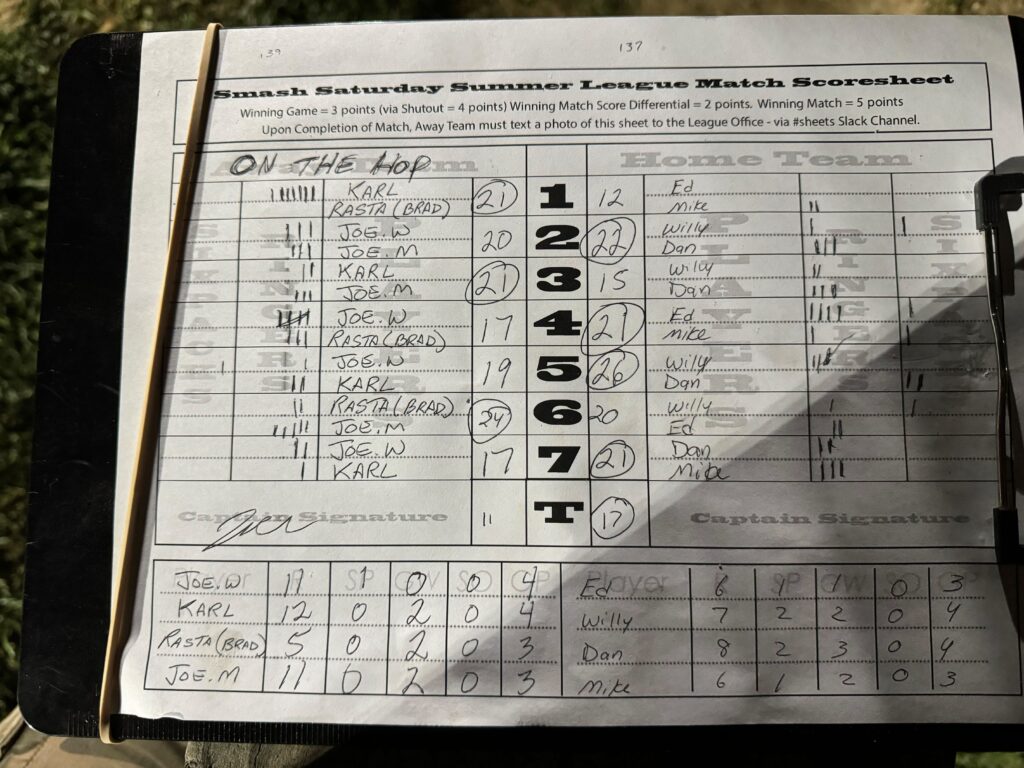 139 137
Smash Saturday Summer League Match Scoresheet
Winning Game = 3 points (via Shutout = 4 points) Winning Match Score Differential = 2 points. Winning Match = 5 points
Upon Completion of Match, Away Team must text a photo of this sheet to the League Office - via #sheets Slack Channel.
ON THE HOP Home Team
KARL 21 1 12 Ed
RASTA (BRAD) Mike
JOE.W 20 2 22 Willy
JOE.M Dan
KARL 21 3 15 Willy
JOE.M Dan
JOE.W 17 4 21 Ed
RASTA (BRAD) Mike
JOE.W 19 5 26 Willy
KARL Dan
RASTA (BRAD) 24 6 20 Willy
JOE.M Ed
JOE.W 17 7 21 Dan
KARL Mike
Captain Signature 11 T 17 Captain Signature
JOE.W 1 0 0 4 Ed 6 1 1 0 3
KARL 12 0 2 0 4 Willy 7 2 2 0 4
RASTA (BRAD) 5 0 2 0 3 Dan 8 2 3 0 4
JOE.M 11 0 2 0 3 Mike 6 1 2 0 3